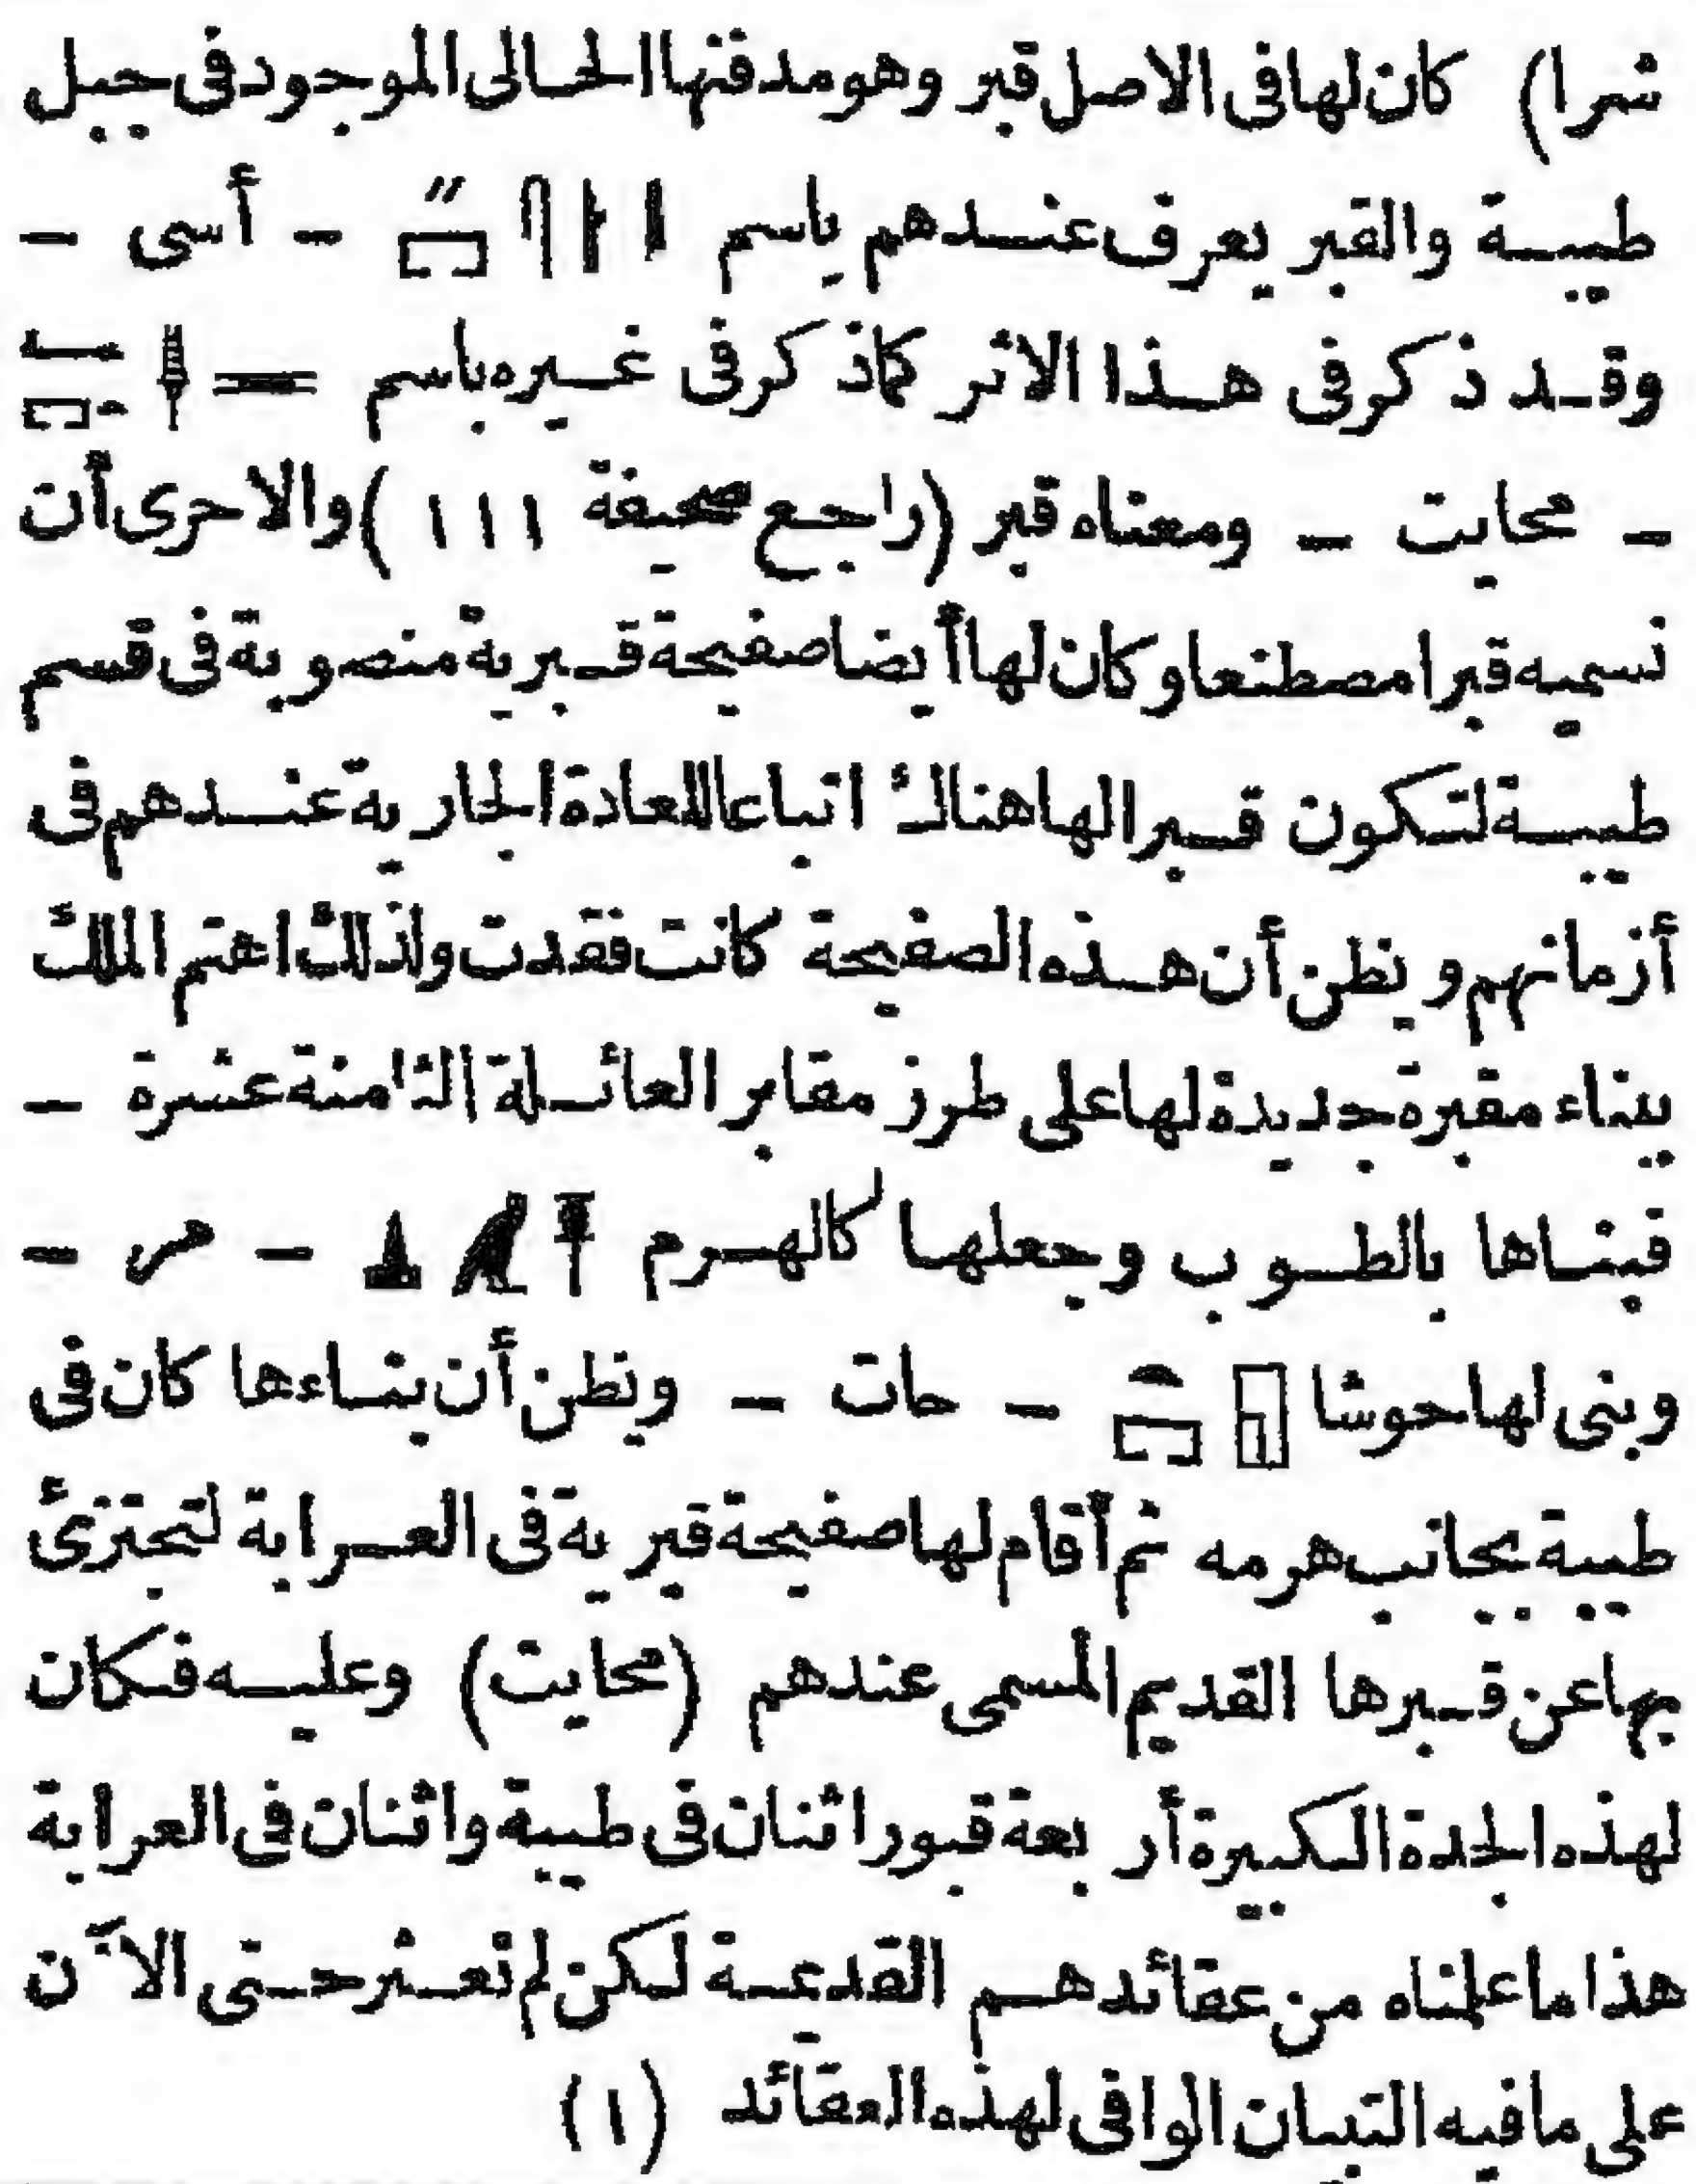 شرا) كان لها فى الاصل قبر وهو مدفنها الحالى الموجود فى جبل
طيبة والقبر يعرف عندهم باسم - أسى -
وقد ذكر فى هذا الاثر كما ذكر فى غيره باسم
- محايت - ومعناه قبر (راجع صحيفة ١١١) والاحرى أن
نسميه قبرا مصطنعا وكان لها أيضا صفيحة قبرية منصوبة فى قسم
طيبة لتكون قبرا لها هناك اتباعا للعادة الجارية عندهم فى
أزمانهم ونظن أن هذه الصفيحة كانت فقدت ولذلك اهتم الملك
ببناء مقبرة جديدة لها على طرز مقابر العائلة الثامنة عشرة -
فبناها بالطوب وجعلها كالهرم - مر -
وبنى لها حوشا - حات - ونظن أن بناءها كان فى
طيبة بجانب هرمه ثم أقام لها صفيحة قبرية فى العرابة لتجتزئ
بها عن قبرها القديم المسمى عندهم (محايت) وعليه فكان
لهذه الجدة الكبيرة أربعة قبور اثنان فى طيبة واثنان فى العرابة
هذا ما علمناه من عقائدهم القديمة لكن لم نعثر حتى الآن
على ما فيه التبيان الوافى لهذه العقائد (١)